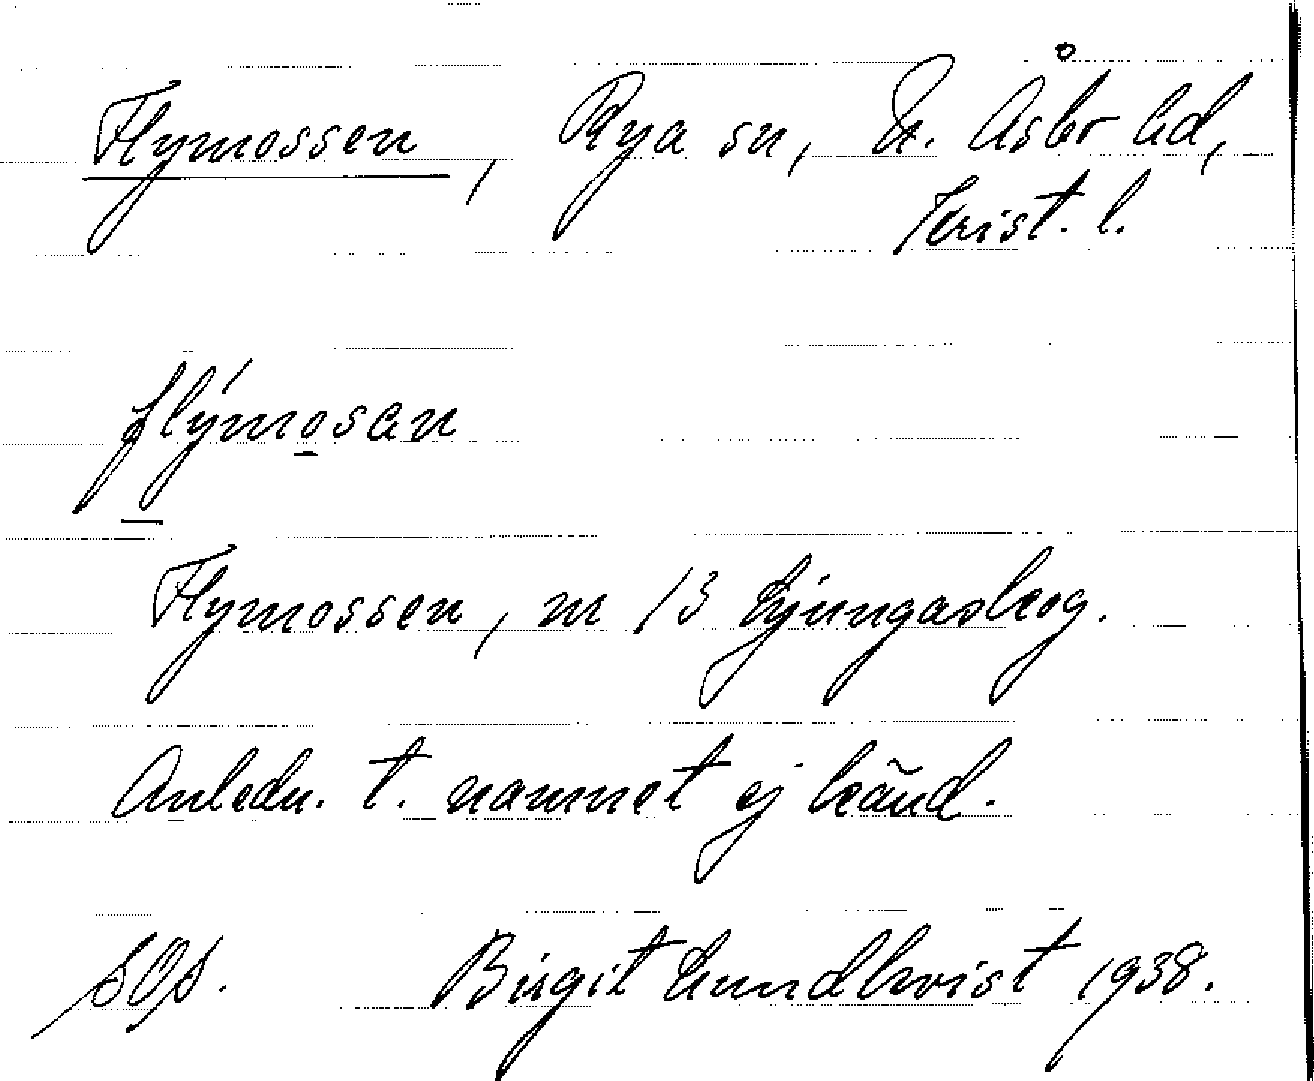 Flymossen, Rya sn, N. Åsbo hd,
Krist. l.
flýmosan
Flymossen, m 13 Ljungaskog.
Anledn. t. namnet ej känd.
Birgit Lundkvist 1938.